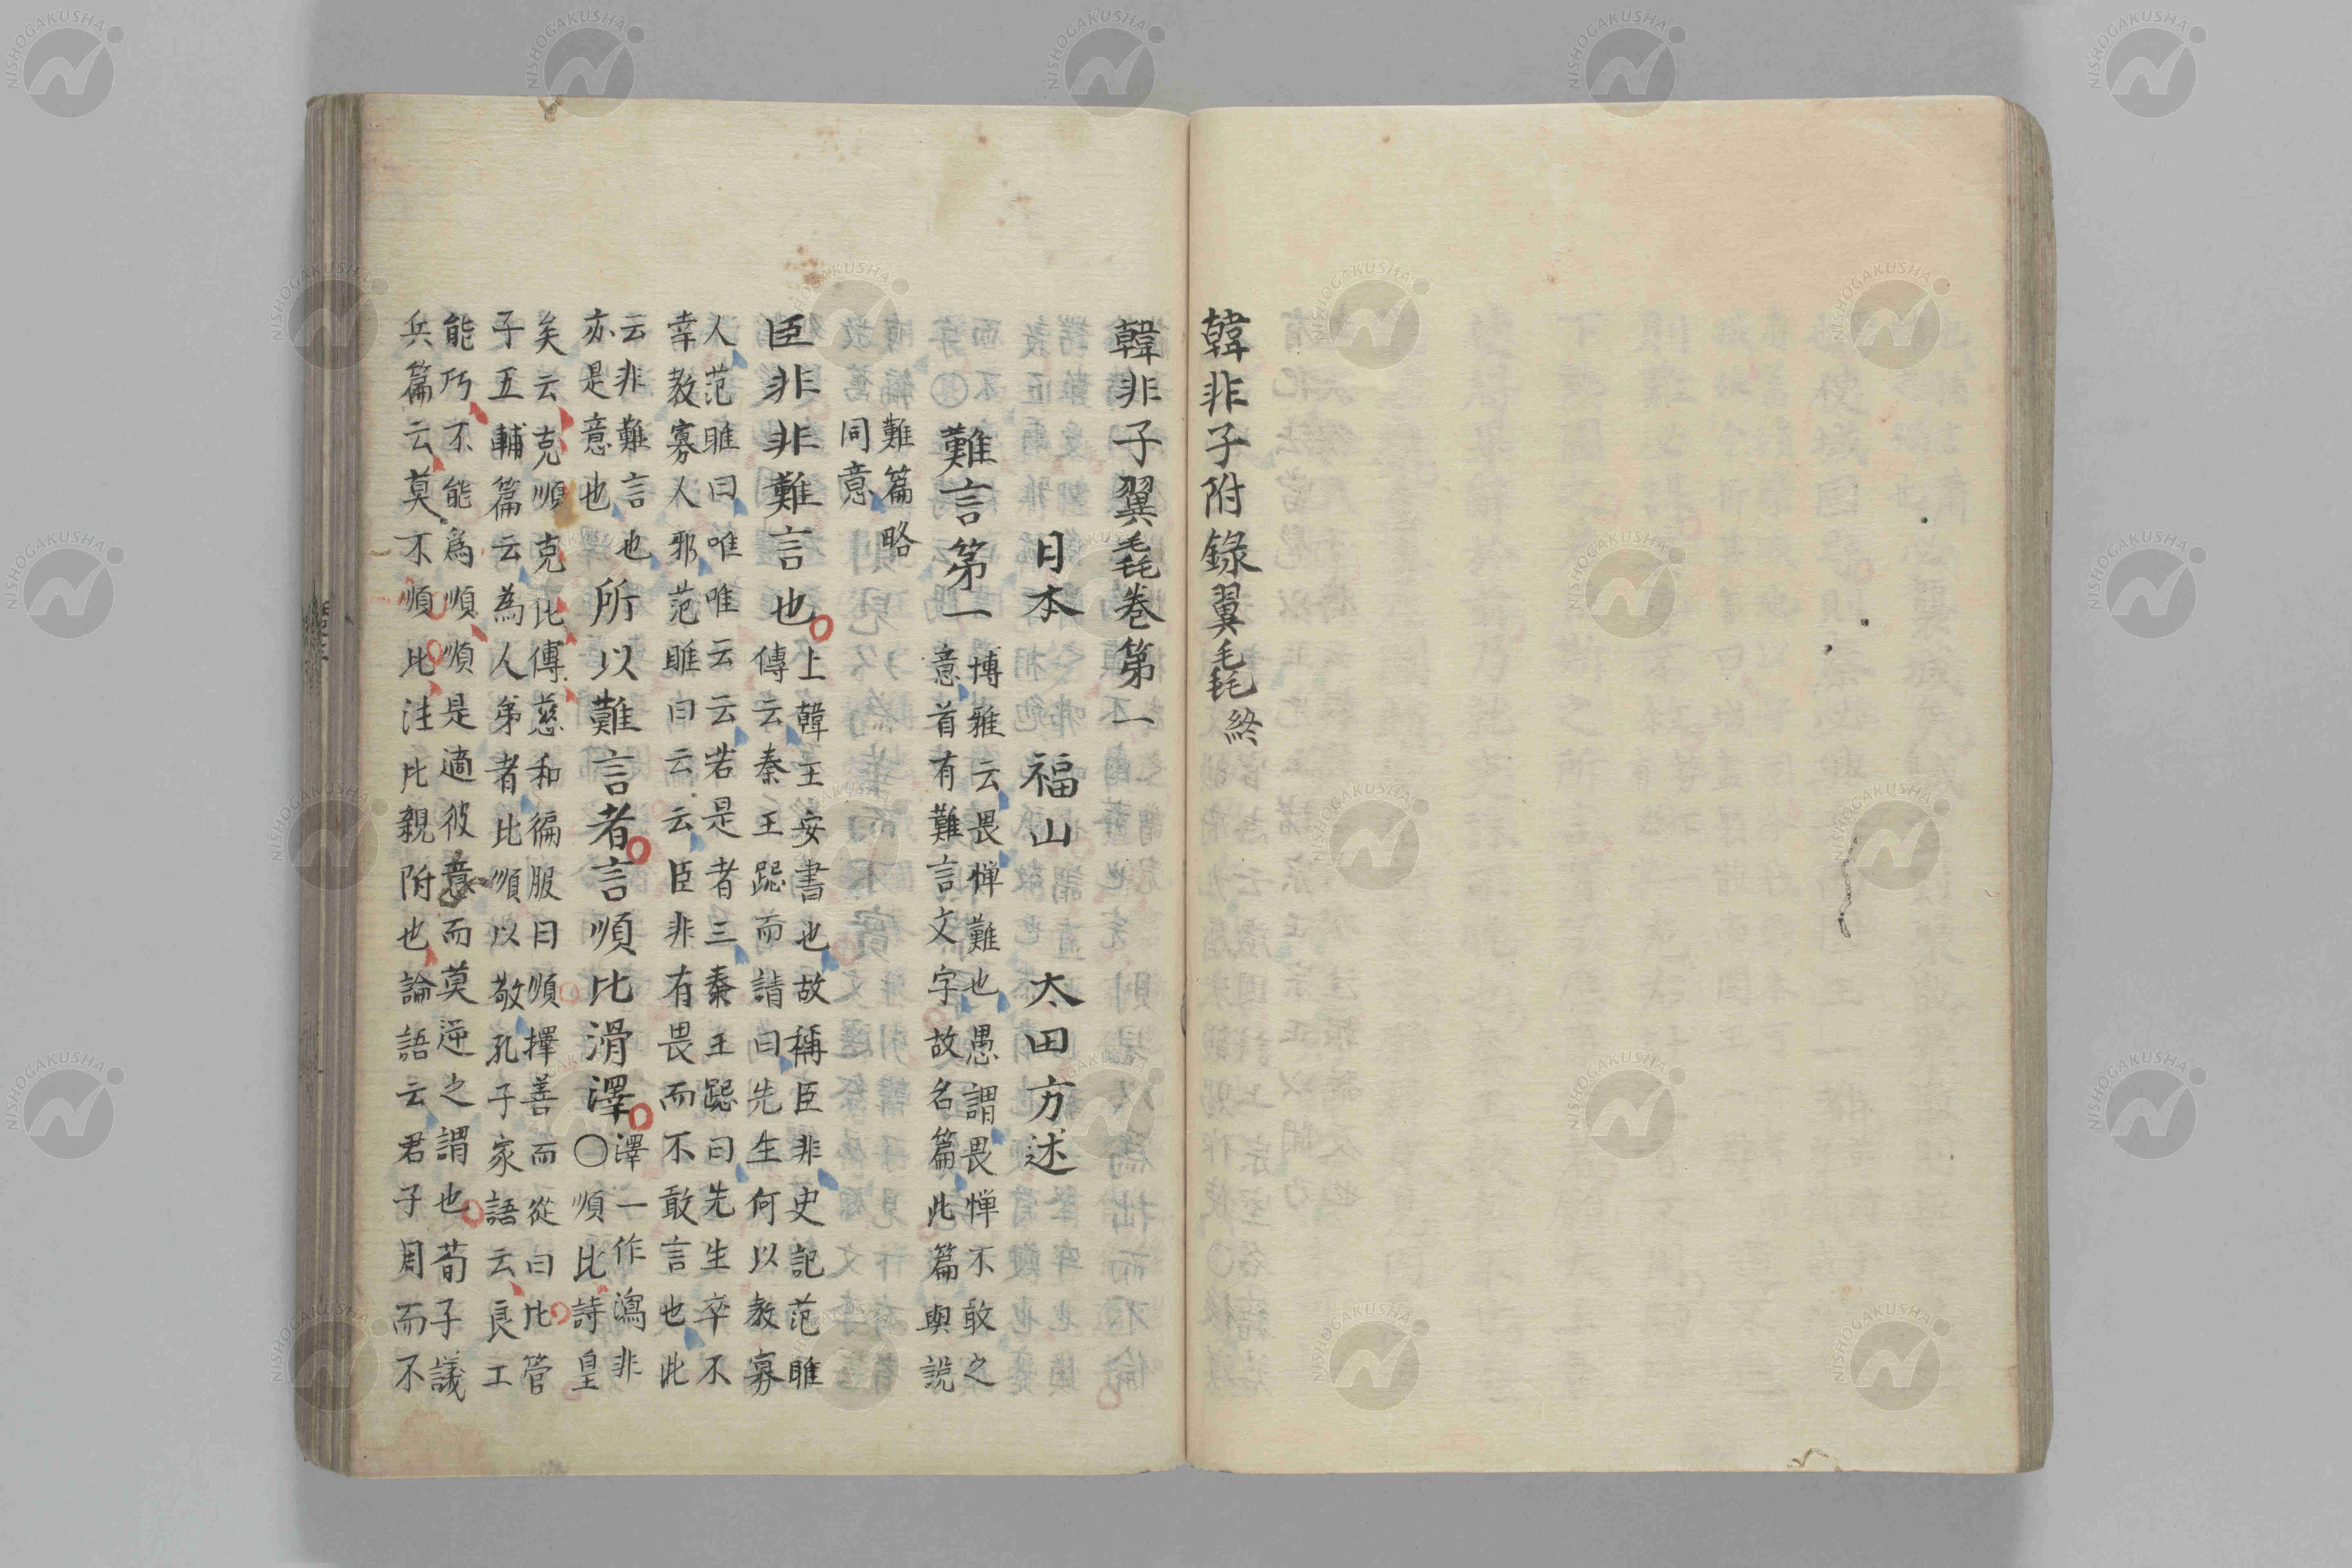 韓非子附錄翼毳終
韓非子翼毳卷第一
日本 福山 太田方述
難言第一
博雅云畏憚難也愚謂畏憚不敢之
意首有難言文字故名篇此篇與說
難篇略
同意
臣非非難言也
上韓王安書也故稱臣非史記范雎
傳云秦王跽而請曰先生何以教寡
人范雎曰唯唯云云若是者三秦王跽曰先生卒不
幸教寡人邪范雎曰云云臣非有畏而不敢言也此
云非難言也
亦是意也
所以難言者言順比滑澤
澤一作瀉非
〇順比詩皇
矣云克順克比傳慈和徧服曰順擇善而從曰比管
子五輔篇云為人弟者比順以敬孔子家語云良工
能巧不能爲順順是適彼意而莫逆之謂也荀子議
兵篇云莫不順比注比親附也論語云君子周而不
NISHOGAKUSHA